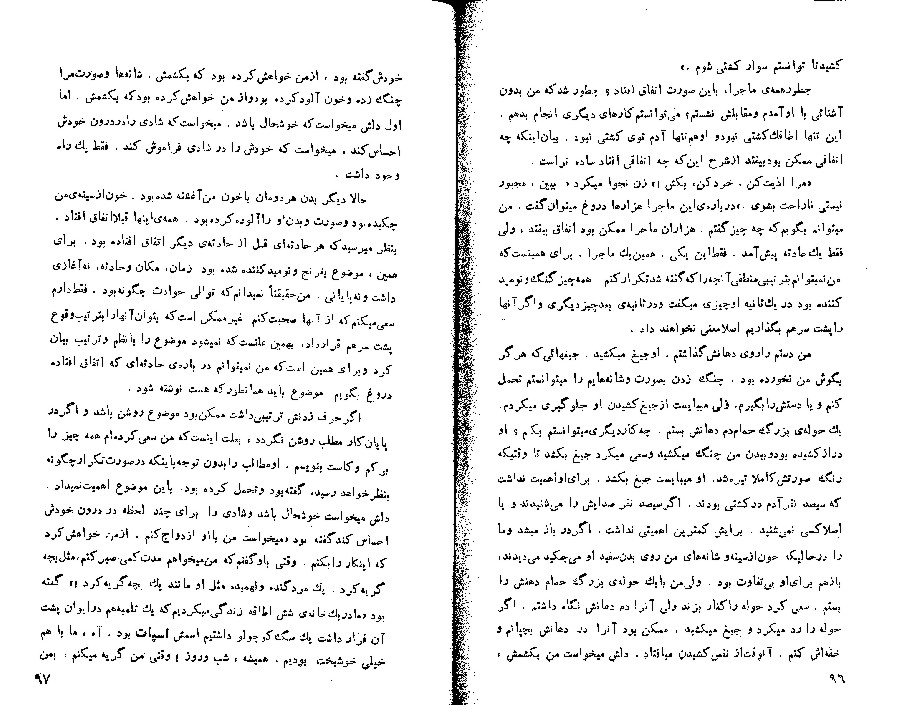 کشیدتا توانستم سوار کشتی شوم .»
چطور همه‌ی ماجرا، باین صورت اتفاق افتاد ؟ چطور شد که من بدون
آشنائی با او آمدم و مقابلش نشستم؟ می‌توانستم کارهای دیگری انجام بدهم .
این تنها اطاقک کشتی نبود و او هم تنها آدم توی کشتی نبود . بیان اینکه چه
اتفاقی ممکن بود بیفتد از شرح این‌که چه اتفاقی افتاد ساده‌تر است .
«مرا اذیت کن . خرد کن، بکش !» زن نجوا میکرد « ببین ، مجبور
نیستی ناراحت بشوی .» درباره‌ی این ماجرا هزارها دروغ میتوان گفت . من
میتوانم بگویم که چه چیز گفتم . هزاران ماجرا ممکن بود اتفاق بیفتد ، ولی
فقط یك حادثه پیش آمد . فقط این یکی . همین یك ماجرا . برای همینست که
من نمیتوانم بترتیبی منطقی آنچه را که گفته شد تکرار کنم . همه چیز گنگ و نومید
کننده بود در یك ثانیه او چیزی میگفت و در ثانیه‌ی بعد چیز دیگری و اگر آنها
را پشت سرهم بگذاریم اصلا معنی نخواهند داد .
من دستم را روی دهانش گذاشتم . او جیغ میکشید . جیغهائی که هرگز
بگوش من نخورده بود . چنگ زدن بصورت و شانه‌هایم را میتوانستم تحمل
کنم و یا دستش را بگیرم، ولی میبایست از جیغ کشیدن او جلوگیری میکردم.
یك حوله‌ی بزرگ حمام دم دهانش بستم . چه کار دیگری میتوانستم بکنم ؟ او
دراز کشیده بود و بیدن من چنگ میکشید وسعی میکرد جیغ بکشد تا وقتیکه
رنگ صورتش کاملا تیره شد. او میبایست جیغ بکشد . برای او اهمیت نداشت
که سیصد نفر آدم در کشتی بودند . اگر سیصد نفر صدایش را می‌شنیدند و یا
اصلا کسی نمی‌شنید . برایش کمترین اهمیتی نداشت . اگر در باز میشد و ما
را در حالیکه خون از سینه و شانه‌های من روی بدن سفید او می‌چکید می‌دیدند،
بازهم برای او بی‌تفاوت بود . ولی من با یك حوله‌ی بزرگ حمام دهنش را
بستم . سعی کرد حوله را کنار بزند ولی آنرا دم دهانش نگاه داشتم . اگر
حوله را رد میکرد و جیغ میکشید ، ممکن بود آنرا در دهانش بچپانم و
خفه‌اش کنم . آنوقت از نفس کشیدن میافتاد . دلش میخواست من بکشمش ؛
۹٦
خودش گفته بود ، از من خواهش کرده بود که بکشمش . شانه‌ها و صورت مرا
چنگ زده و خون آلود کرده بود و از من خواهش کرده بود که بکشمش . اما
اول دلش میخواست که خوشحال باشد . میخواست که شادی را در درون خودش
احساس کند . میخواست که خودش را در شادی فراموش کند . فقط یك راه
وجود داشت .
حالا دیگر بدن هردومان با خون من آغشته شده بود . خون از سینه‌ی من
چکیده بود و صورت و بدن او را آلوده کرده بود . همه‌ی اینها قبلا اتفاق افتاد .
بنظر میرسید که هر حادثه‌ای قبل از حادثه‌ی دیگر اتفاق افتاده بود . برای
همین ، موضوع بغرنج و نومید کننده شده بود . زمان، مکان و حادثه، نه آغازی
داشت و نه پایانی . من حقیقتاً نمیدانم که توالی حوادث چگونه بود . فقط دارم
سعی میکنم که از آنها صحبت کنم . غیر ممکن است که بتوان آنها را بترتیب وقوع
پشت سرهم قرار داد، بهمین علت است که نمیشود موضوع را با نظم و ترتیب بیان
کرد و برای همین است که من نمیتوانم در باره‌ی حادثه‌ای که اتفاق افتاده
دروغ بگویم . موضوع باید همانطور که هست نوشته شود .
اگر حرف زدنش ترتیبی داشت ممکن بود موضوع روشن باشد و اگر در
پایان کار مطلب روشن نگردد ، بعلت اینست که من سعی کرده‌ام همه چیز را
بی کم و کاست بنویسم . او مطالب را بدون توجه باینکه در صورت تکرار چگونه
بنظر خواهد رسید، گفته بود و تحمل کرده بود. باین موضوع اهمیت نمیداد .
دلش میخواست خوشحال باشد و شادی را برای چند لحظه در درون خودش
احساس کند گفته بود «میخواست من با او ازدواج کنم . از من خواهش کرد
که اینکار را بکنم . وقتی باو گفتم که من میخواهم مدت کمی صبر کنم، مثل بچه
گریه کرد . یك مرد گنده و فهمیده مثل او مانند یك بچه گریه کرد !» گفته
بود «مادر یك خانه‌ی شش اطاقه زندگی میکردیم که یك تلمبه هم در ایوان پشت
آن قرار داشت یك سگ کوچولو داشتیم اسمش اسپات بود . آه ، ما با هم
خیلی خوشبخت بودیم . همیشه ، شب و روز ؛ وقتی من گریه میکنم ، بمن
۹۷